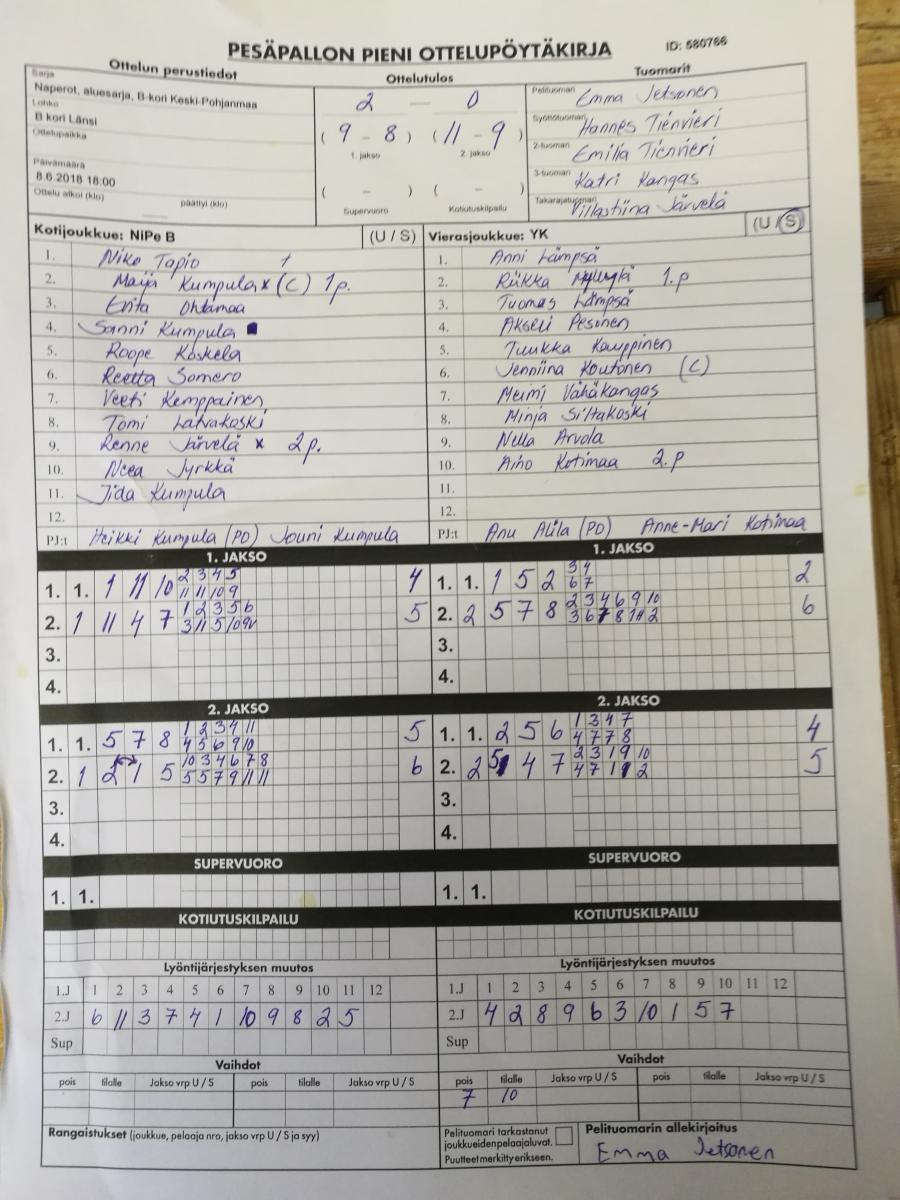 PESÄPALLON PIENI OTTELUPÖYTÄKIRJA
ID: 580766
Ottelun perustiedot
Sarja
Naperot, aluesarja, B-kori Keski-Pohjanmaa
Lohko
B kori Länsi
Ottelupaikka
Päivämäärä
8.6.2018 18:00
Ottelu alkoi (klo) päättyi (klo)
Ottelutulos
2 — 0
( 9 - 8 ) ( 11 - 9 )
1. jakso 2. jakso
( - ) ( - )
Supervuoro Kotiutuskilpailu
Tuomarit
Pelituomari Emma Jetsonen
Syöttötuomari Hannes Tienvieri
2-tuomari Emilia Tienvieri
3-tuomari Katri Kangas
Takarajatuomari Viilastiina Järvelä
Kotijoukkue: NiPe B (U / S)
1. Niko Tapio 1
2. Maija Kumpula x (C) 1p.
3. Erita Ohtamaa
4. Sanni Kumpula
5. Roope Koskela
6. Reetta Somero
7. Veeti Kemppainen
8. Tomi Latvakoski
9. Renne Järvelä x 2p.
10. Neea Jyrkkä
11. Iida Kumpula
12.
PJ:t Heikki Kumpula (PD) Jouni Kumpula
Vierasjoukkue: YK (U / S)
1. Anni Lämpsä
2. Riikka 1.p
3. Tuomas Lämpsä
4. Akseli Pesonen
5. Tuukka Kauppinen
6. Jenniina Koutonen (C)
7. Meimi Vähäkangas
8. Minja Siltakoski
9. Nella Arvola
10. Aino Kotimaa 2.p
11.
12.
PJ:t Anu Alila (PD) Anne-Mari Kotimaa
1. JAKSO
2 3 4 5
1. 1. 1 11 10 11 11 10 9 4
1 2 3 5 6
2. 1 11 4 7 3 11 5 10 9 5
3.
4.
1. JAKSO
3 4
1. 1. 1 5 2 6 7 2
2 3 4 6 9 10
2. 2 5 7 8 3 6 7 8 2 6
3.
4.
2. JAKSO
1 2 3 4 11
1. 1. 5 7 8 4 5 6 9 10 5
10 3 4 6 7 8
2. 1 2 1 5 5 5 7 9 11 11 6
3.
4.
2. JAKSO
1 3 4 7
1. 1. 2 5 6 4 7 7 8 4
2 3 1 9 10
2. 2 5 4 7 4 7 1 2 5
3.
4.
SUPERVUORO
1. 1.
SUPERVUORO
1. 1.
KOTIUTUSKILPAILU
KOTIUTUSKILPAILU
Lyöntijärjestyksen muutos
1.J 1 2 3 4 5 6 7 8 9 10 11 12
2.J 6 11 3 7 4 1 10 9 8 2 5
Sup
Lyöntijärjestyksen muutos
1.J 1 2 3 4 5 6 7 8 9 10 11 12
2.J 4 2 8 9 6 3 10 1 5 7
Sup
Vaihdot
pois tilalle Jakso vrp U / S pois tilalle Jakso vrp U / S
Vaihdot
pois tilalle Jakso vrp U / S pois tilalle Jakso vrp U / S
7 10
Rangaistukset (joukkue, pelaaja nro, jakso vrp U / S ja syy)
Pelituomari tarkastanut
joukkueiden pelaajaluvat.
Puutteet merkitty erikseen.
Pelituomarin allekirjoitus
Emma Jetsonen